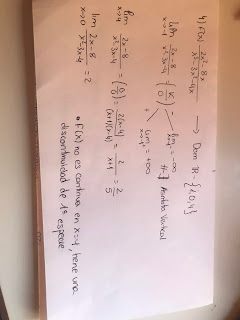 4) F(x) = 2x²-8x / x³-3x²-4x → Dom ℝ - {-1,0,4}
lim x→-1 2x-8 / x²-3x-4 = (K/0) lim x→-1⁻ = -∞
lim x→-1⁺ = +∞
∄ ⇒ Asíntota Vertical
lim x→4 2x-8 / x²-3x-4 = (0/0) = 2(x-4) / (x+1)(x-4) = 2 / x+1 = 2/5
lim x→0 2x-8 / x²-3x-4 = 2
• F(x) no es continua en x=4, tiene una
discontinuidad de 1ª especie